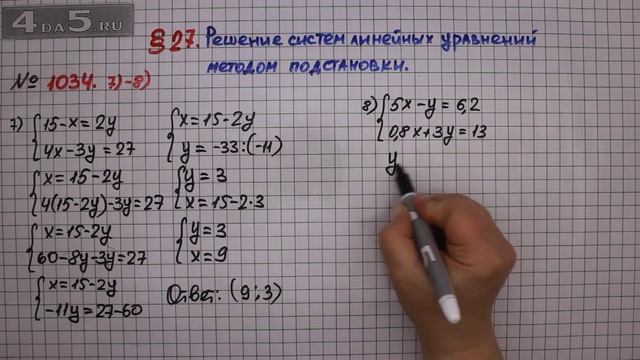 4DA5.RU
§27. Решение систем линейных уравнений
методом подстановки.
№ 1034. 7)-8)
7) {15-x=2y
4x-3y=27
{x=15-2y
4(15-2y)-3y=27
{x=15-2y
60-8y-3y=27
{x=15-2y
-11y=27-60
{x=15-2y
y=-33:(-11)
{y=3
x=15-2·3
{y=3
x=9
Ответ: (9;3)
8) {5x-y=6,2
0,8x+3y=13
y